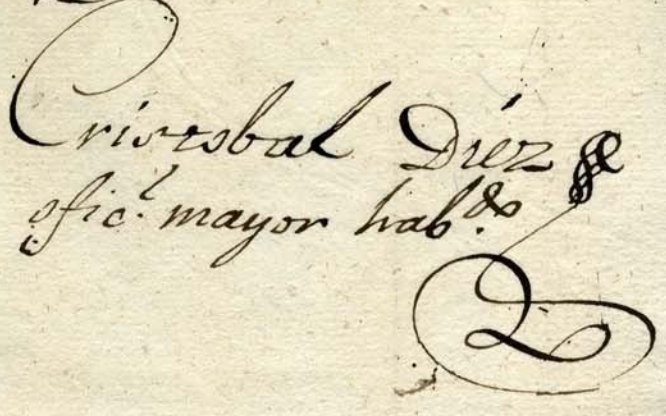 Cristobal Díez
ofic.l mayor hab.do